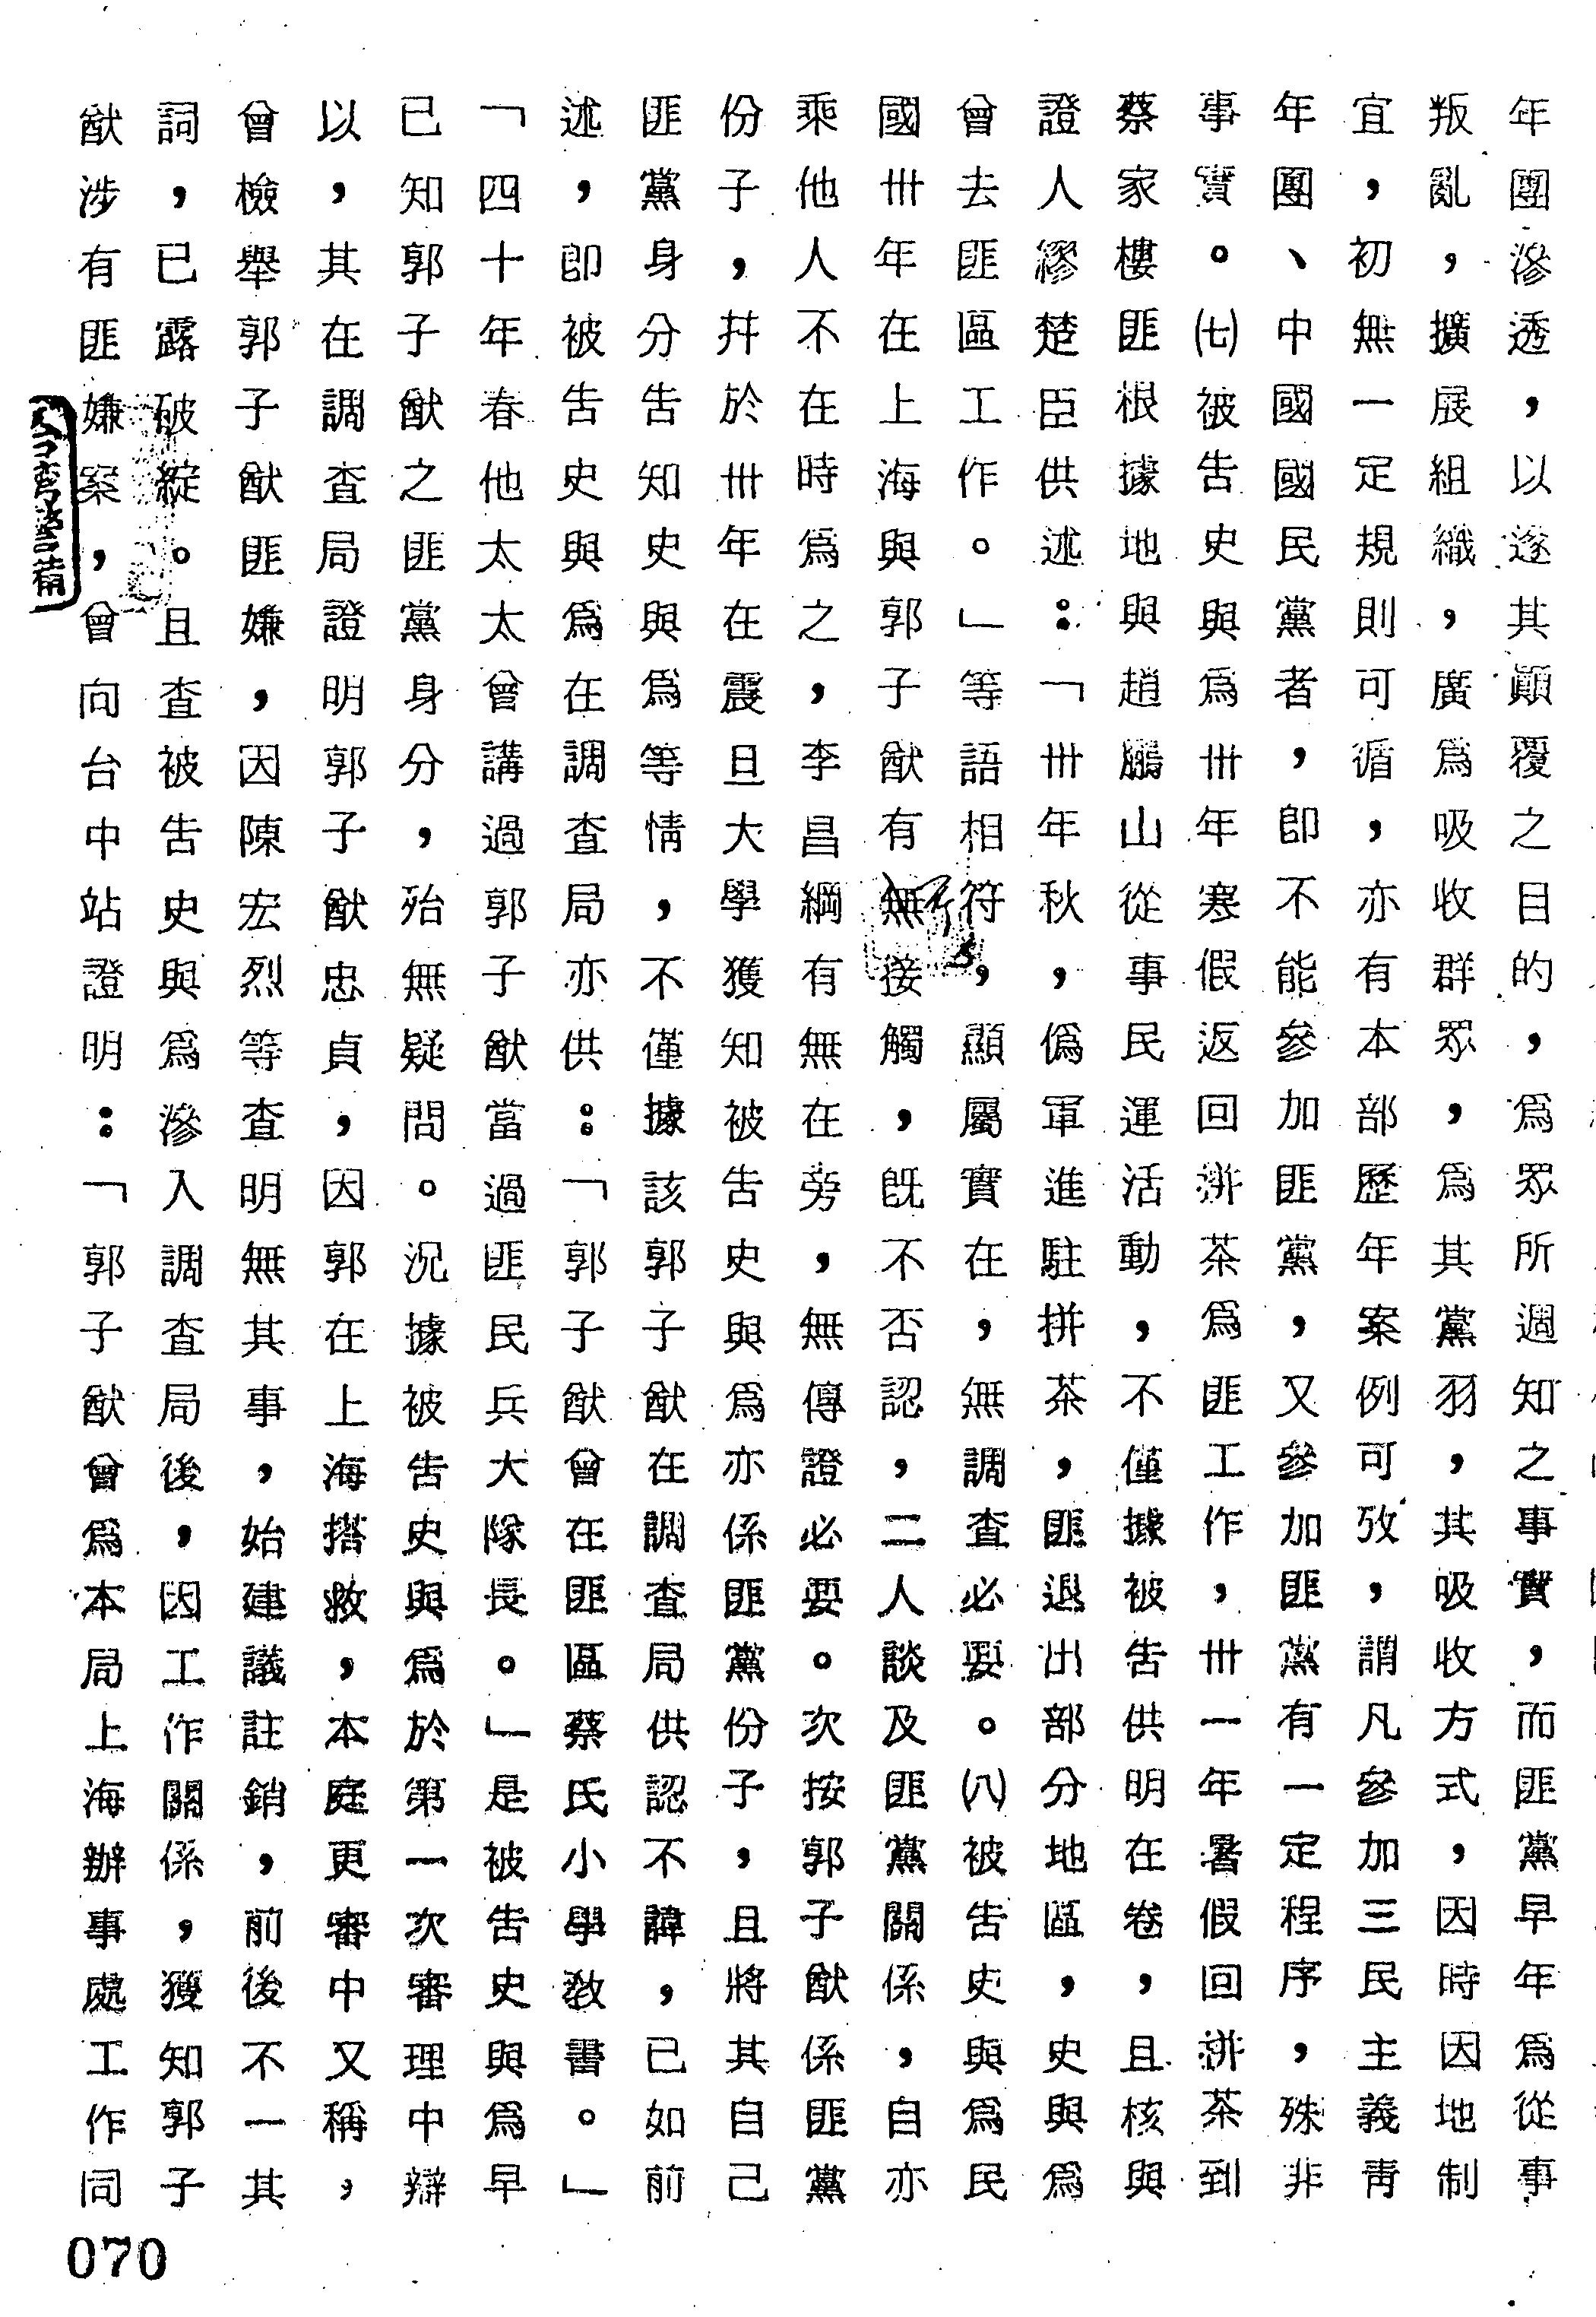 年團滲透，以遂其顚覆之目的，爲眾所週知之事實，而匪黨早年爲從事
叛亂，擴展組織，廣爲吸收群眾，爲其黨羽，其吸收方式，因時因地制
宜，初無一定規則可循，亦有本部歷年案例可攷，謂凡參加三民主義靑
年團、中國國民黨者，卽不能參加匪黨，又參加匪黨有一定程序，殊非
事實。㈦被告史與爲卅年寒假返回拼茶爲匪工作，卅一年暑假回拼茶到
蔡家樓匪根據地與趙鵬山從事民運活動，不僅據被告供明在卷，且核與
證人繆楚臣供述：「卅年秋，僞軍進駐拼茶，匪退出部分地區，史與爲
曾去匪區工作。」等語相符，顯屬實在，無調查必要。㈧被告史與爲民
國卅年在上海與郭子猷有無接觸，旣不否認，二人談及匪黨關係，自亦
乘他人不在時爲之，李昌綱有無在旁，無傳證必要。次按郭子猷係匪黨
份子，幷於卅年在震旦大學獲知被告史與爲亦係匪黨份子，且將其自己
匪黨身分告知史與爲等情，不僅據該郭子猷在調查局供認不諱，已如前
述，卽被告史與爲在調查局亦供：「郭子猷曾在匪區蔡氏小學敎書。」
「四十年春他太太曾講過郭子猷當過匪民兵大隊長。」是被告史與爲早
已知郭子猷之匪黨身分，殆無疑問。況據被告史與爲於第一次審理中辯
以，其在調查局證明郭子猷忠貞，因郭在上海搭救，本庭更審中又稱，
曾檢舉郭子猷匪嫌，因陳宏烈等查明無其事，始建議註銷，前後不一其
詞，已露破綻。且查被告史與爲滲入調查局後，因工作關係，獲知郭子
猷涉有匪嫌案，曾向台中站證明：「郭子猷曾爲本局上海辦事處工作同
台灣警備
070